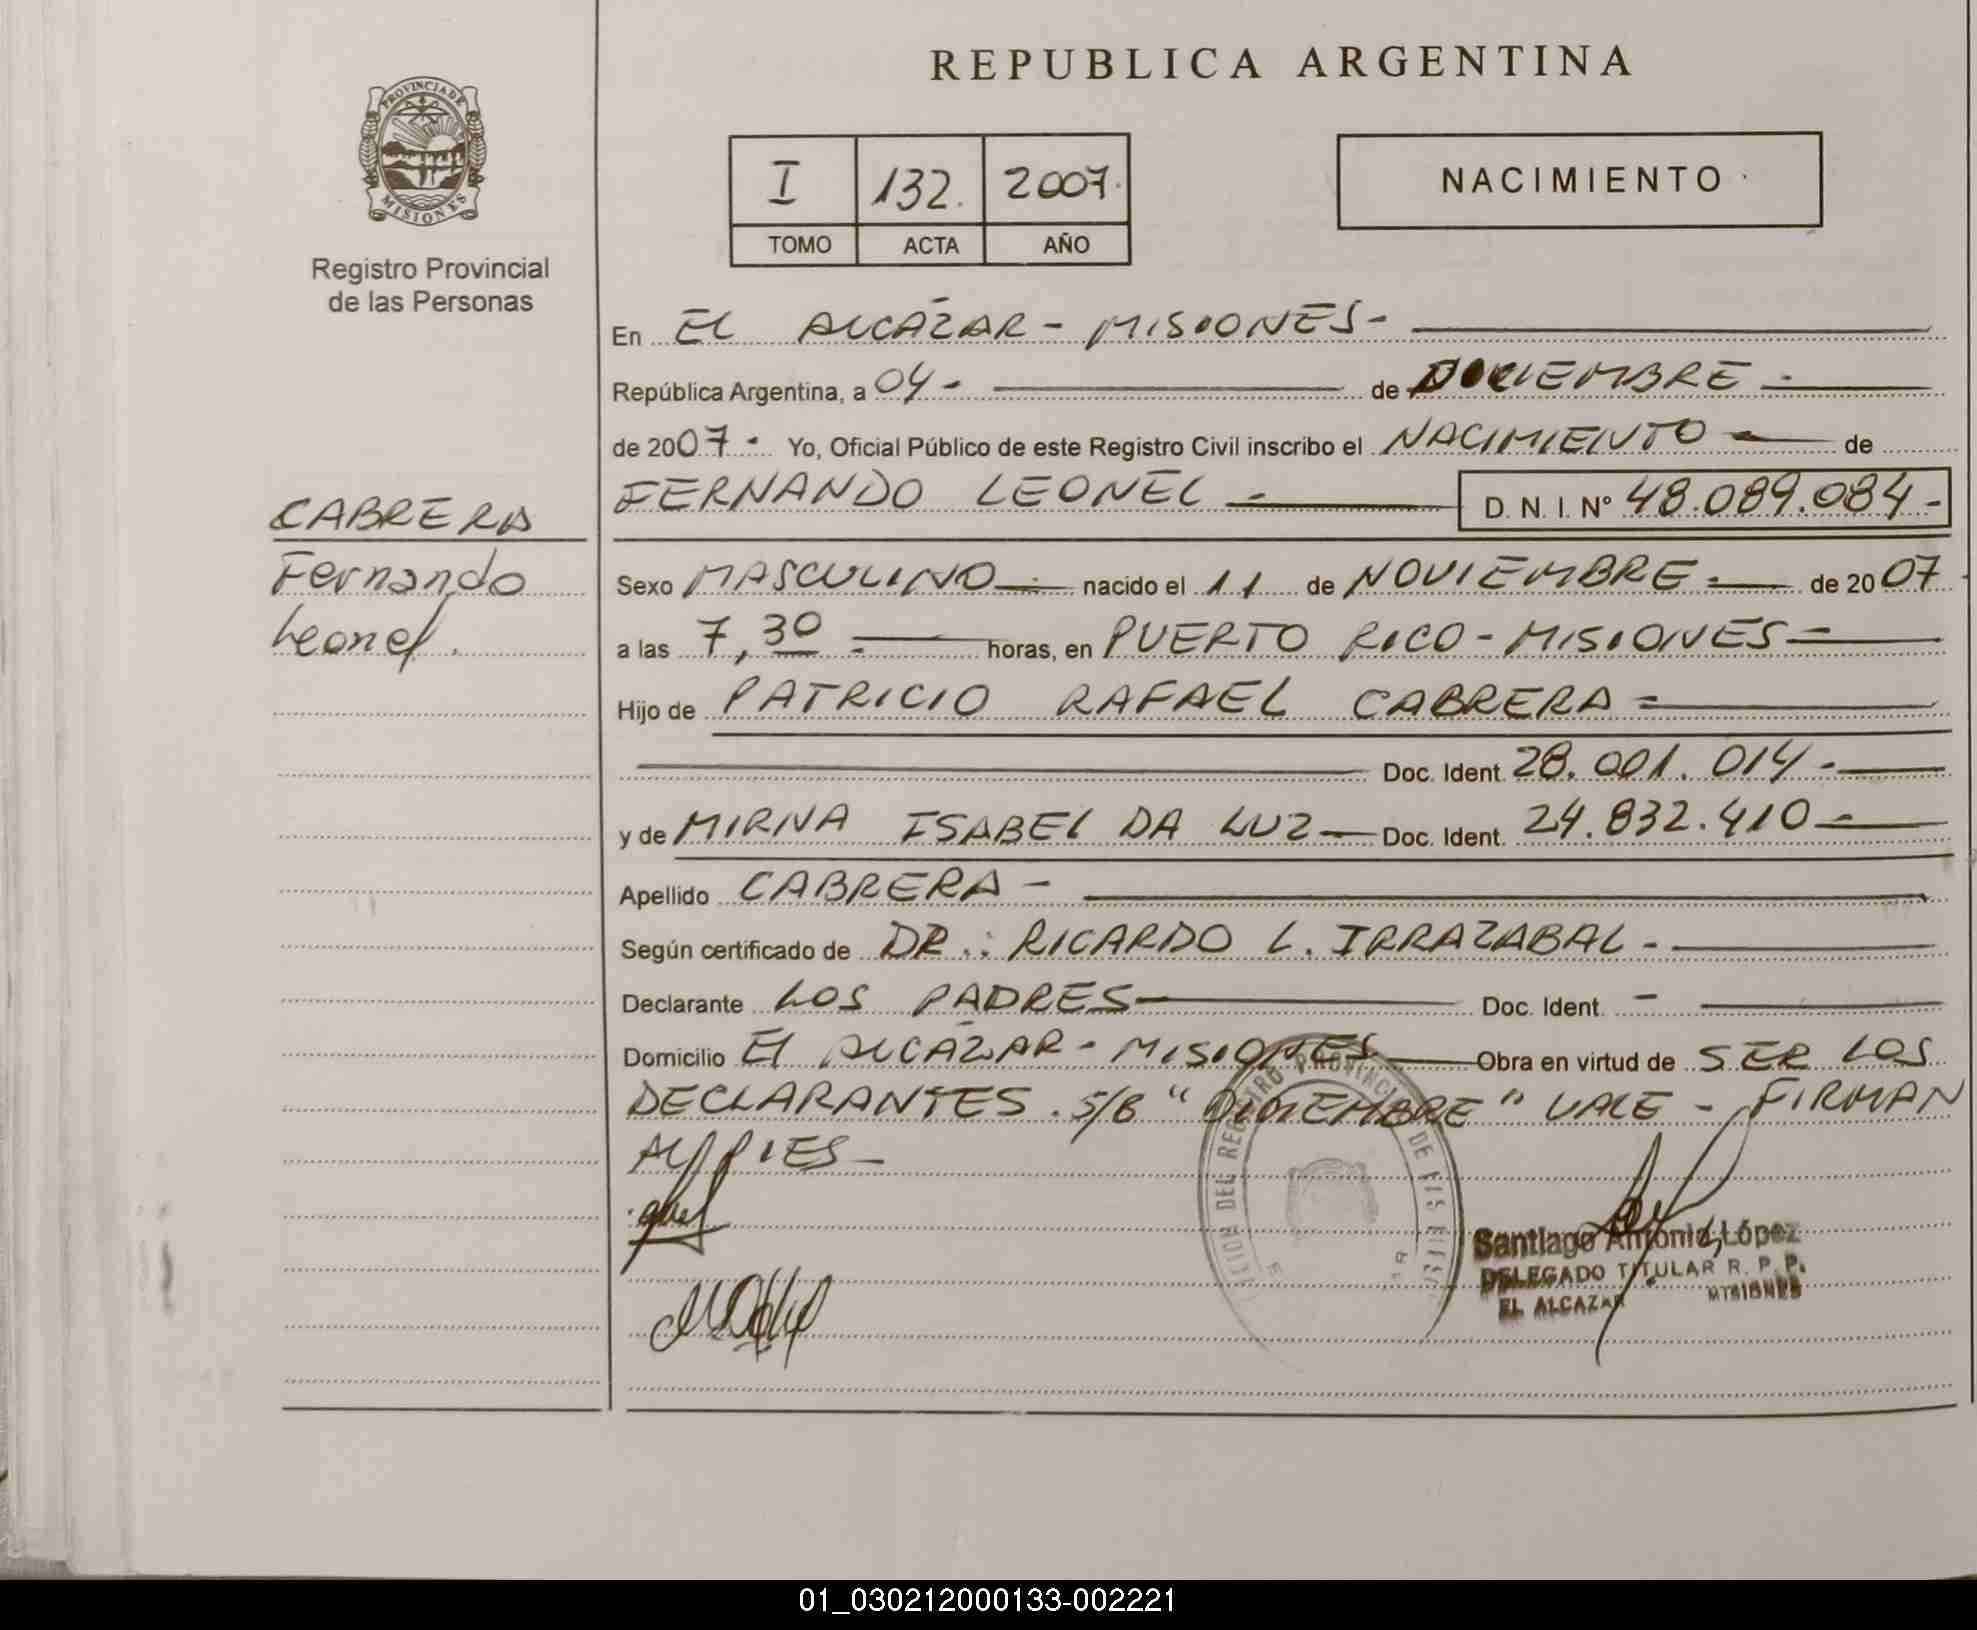 REPUBLICA ARGENTINA
PROVINCIA DE
MISIONES
Registro Provincial
de las Personas
I 132. 2007.
TOMO ACTA AÑO
NACIMIENTO
En EL ALCÁZAR - MISIONES-
República Argentina, a 04 - de DICIEMBRE -
de 2007 - Yo, Oficial Público de este Registro Civil inscribo el NACIMIENTO - de
FERNANDO LEONEL - D. N. I. Nº 48.089.084-
CABRERA
Fernando
Leonel.
Sexo MASCULINO - nacido el 11 de NOVIEMBRE - de 2007
a las 7,30 - horas, en PUERTO RICO - MISIONES -
Hijo de PATRICIO RAFAEL CABRERA -
Doc. Ident. 28.001.014 -
y de MIRNA ISABEL DA LUZ - Doc. Ident. 24.832.410 -
Apellido CABRERA -
Según certificado de DR.: RICARDO L. IRRAZABAL -
Declarante LOS PADRES - Doc. Ident. -
Domicilio El ALCÁZAR - MISIONES - Obra en virtud de SER LOS
DECLARANTES. S/B "DICIEMBRE" VALE - FIRMAN
AL PIES -
Santiago Antonio López
DELEGADO TITULAR R. P. P.
EL ALCAZAR MISIONES
01_030212000133-002221